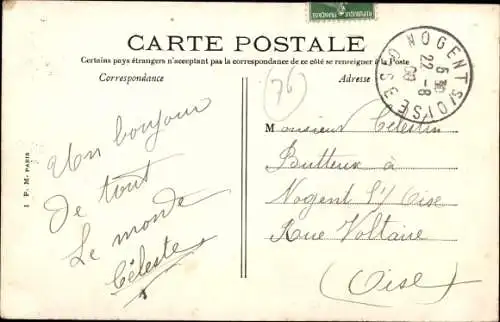 RÉPUBLIQUE FRANÇAISE
CARTE POSTALE
Certains pays étrangers n'acceptant pas la correspondance de ce côté se renseigner à la Poste
Correspondance
Adresse
NOGENT S/ OISE
OISE
5 30
22 - 8
76
Un bonjour
de tout
Le monde
Céleste
Monsieur Célestin
Butteux à
Nogent s/ Oise
Rue Voltaire
(Oise)
I P. M. PARIS